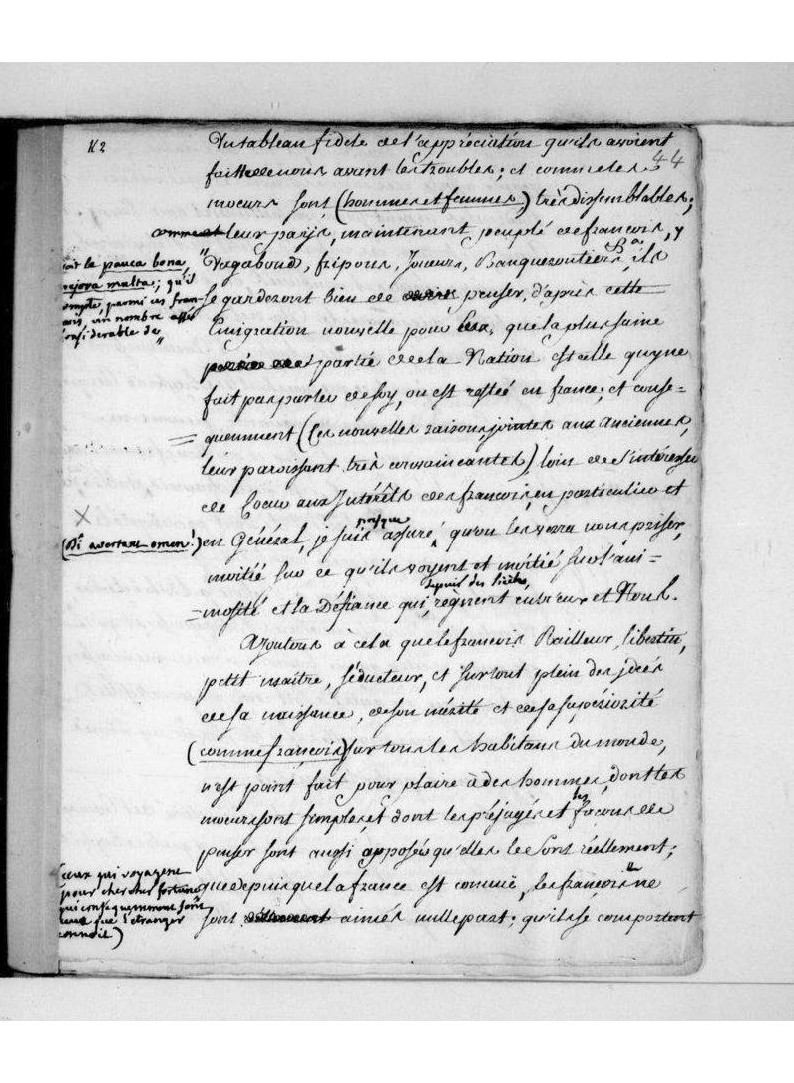 N2
44
Du tableau fidele de l'appréciation qu'ils avoient
faitte de nous avant les troubles; et comme les
moeurs sont (hommes et femmes) très dissemblables;
leur payis, maintenant peuplé de françois, y
Vagabond, fripons, Joueurs, Banqueroutiers, ils
se garderont bien de penser, d'après cette
Emigration nouvelle pour Eux, que la plus saine
partie de la Nation est celle qui ne
fait pas parler de soy, ou est restée en france; et conse=
=quemment (Ces nouvelles raisons, jointes aux anciennes,
leur paroissant très convaincantes) loin de s'intéresser
de Coeur aux Intérêts des françois, en particulier et
en Général, je suis presque assuré, qu'on les verra nous priser,
moitié sur ce qu'ils voyent et moitié sur l'ani=
=mosité et la Défiance qui, depuis des siècles, règnent entre eux et Nous.
Ajoutons à cela que le françois Railleur, libertin,
petit maître, séducteur, et surtout plein des idées
de sa naissance, de son mérite et de sa supériorité
(comme françois) sur tous les habitans du monde,
n'est point fait pour plaire à des hommes, dont les
moeurs sont simples et dont les préjugés et les façons de
penser sont aussi opposés qu'elles le sont réellement;
que depuis que la france est connüe, les françois ne
sont aimés nulle part; qu'ils se comportent
le pauca bona,
majora multa; qu'il
compte, parmi ces fran-
çois, un nombre assés
considerable de "
X
(Di avertant omen!)
(ceux qui voyagent
pour chercher fortune
qui conséquemment sont
ceux que l'étranger
connoit)